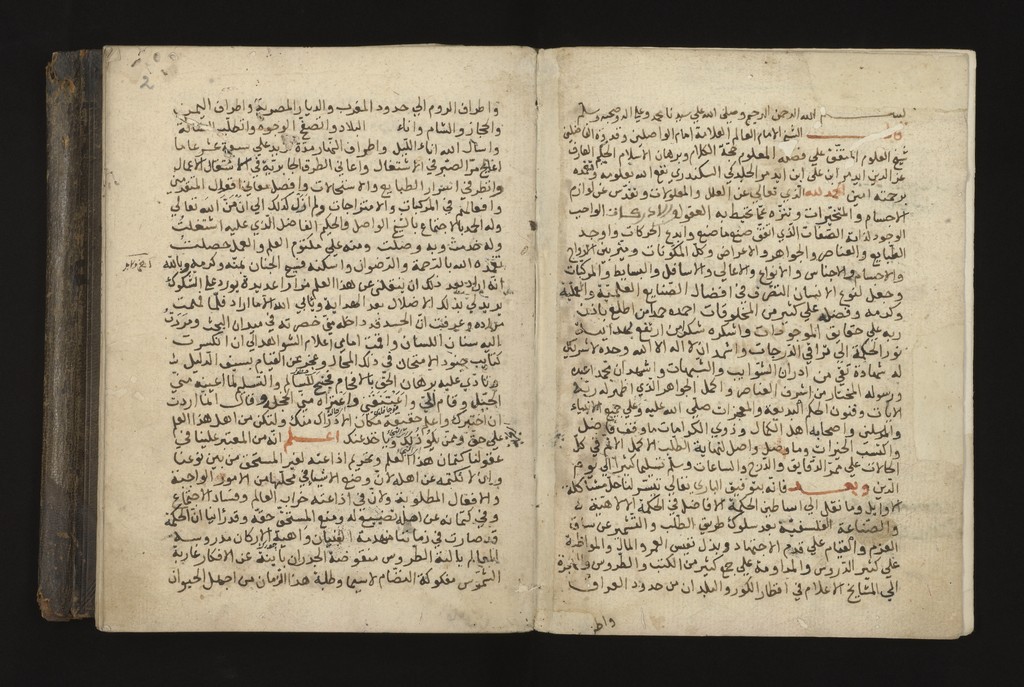 بسم الله الرحمن الرحيم وصلى الله على سيدنا محمد وعلى اله وصحبه وسلم
قال الشيخ الامام العالم العلامة امام الواصلين وقدوة الفاضلين
شيخ العلوم المتفق على فضله المعلوم الكلام وبرهان الاسلام الحكيم العارف
عز الدين ايدمر ابن علي ابن ايدمر الجلدكي السكندري نفع الله بعلومه وتغمده
برحمته امين الحمد لله الذي تعالى عن العلل والمعلولات وتقدس عن لوازم
الاجسام والمتحيزات وتنزه عما تحيط به العقول والادركات الواجب
الوجود لذاته الصفات الذي اتقن صنع ما صنع وابدع الحركات واوجد
الطبايع والعناصر والجواهر والاعراض وكل المكونات وميز بين الارواح
والاجسام والاجناس والانواع والاعالي والاسافل والبسايط والمركبات
وجعل لنوع الانسان التصرف في افضال الصنايع العلمية والعملية
وكرمه وفضله على كثير من المخلوقات احمده حمد من اطلع باذن
ربه على حقايق الموجودات واشكره شكر من ارتفع
نور الحكمة الى مراقي الدرجات واشهد ان لا اله الا الله وحده لا شريك
له شهادة تقي من ادران الشوايب والشبهات واشهد ان محمدا عبده
ورسوله المختار من اشرف العناصر واكمل الجواهر الذي اظهر له ربه
الايات وفنون الحكم البديعة والمعجزات صلى الله عليه وعلى جميع الانبياء
والمرسلين واصحابه اهل الكمال وذوي الكرامات ما وقف فاضل
واكتسب الخيرات وما وصل واصل لنهاية الطلب الاكمل الاتم في كل
الحالات على ممر الدقايق والدرج والساعات وسلم تسليما كثيرا الى يوم
الدين وبعد فانه بتوفيق الباري تعالى تيسر لنا حل مشاكلة
الاوايل وما نقل الى اساطين الحكمة الافاضل في الحكمة الالاهية
والصناعة الفلسفية بعد سلوك طريق الطلب والتشمير عن ساق
العزم والقيام على قدم الاجتهاد وبذل نفيس العمر والمال والمواظبة
على كثير الدروس والمداومة على جمع كثير من الكتب والطروس
الى المشايخ الاعلام في اقطار الكور والبلدان من حدود العراق
واطر
2
واطراف الروم الى حدود المغرب والديار المصرية واطراف اليمن
والحجاز والشام واثناء البلاد والتصفح الوجوه والطلب
واسأل الله اناء الليل واطراف النهار مدة تزيد على سبعة عشر عاما
الصبر في الاشتغال واعاني الطرق الجابرية في الاشتغال الاعمال
وانظر في اسرار الطبايع والاستحالات وافضل معاني افعال المتقدمين
وافعالهم في المركبات والامتزاجات ولم ازل كذلك الى ان من الله تعالى
وله الحمد بالاجتماع بالشيخ الواصل والحكيم الفاضل الذي عليه اشتغلت
وله خدمت وبه وصلت ومنه على مكتوم العلم والعمل حصلت
تغمده الله بالرحمة والرضوان واسكنه فسيح الجنان بمنه وكرمه وبالله
انه اراد بعد ذلك ان ينقلني عن هذا العلم مرارا عديدة يورد على الشكوك
يريد لي بذلك الاضلال بعد الهداية ويأبى الله الا ما اراد فلما فهمت
مراده وعرفت ان الحسد قد داخله مني حضرته في ميدان البحث
اليه سنان اللسان واقمت امامي اعلام الشواهد الى ان انكسرت
كتايب جنود الامتحان في ذلك المجال وعجز عن القيام بسيف الدليل
ونادى عليه برهان الحق بالافحام والتسليم لما اعينه مني
الجبل وقام الي واعتنقني واعتراه مني الخجل وقال انما اردت
ان اختبرك واعلم حقيقة مكان الادراك منك ولتكن من اهل هذا العلم
على حق ومن ذلك عنك اعلم انه من المعتبر علينا في
عقولنا كتمان هذا العلم وتحريم اذاعته لغير المستحق من بني نوعنا
وان لا نكتمه عن اهله لان وضع الاشياء في محلها من الامور الواجبة
والافعال المطلوبة ولان في اذاعته خراب العالم وفساد الاجتماع
وفي كتمانه عن اهله تضييع له ومنع المستحق حقه وقد راينا ان الحكمة
قد صارت في زماننا مهدمة البنيان واهية الاركان مدروسة
المعالم بالية الطروس منقوضة الجدران باينة عن الافكار غاربة
الشموس مفكوكة النظام لا سيما وطلبة هذا الزمان من اجهل الحيوان